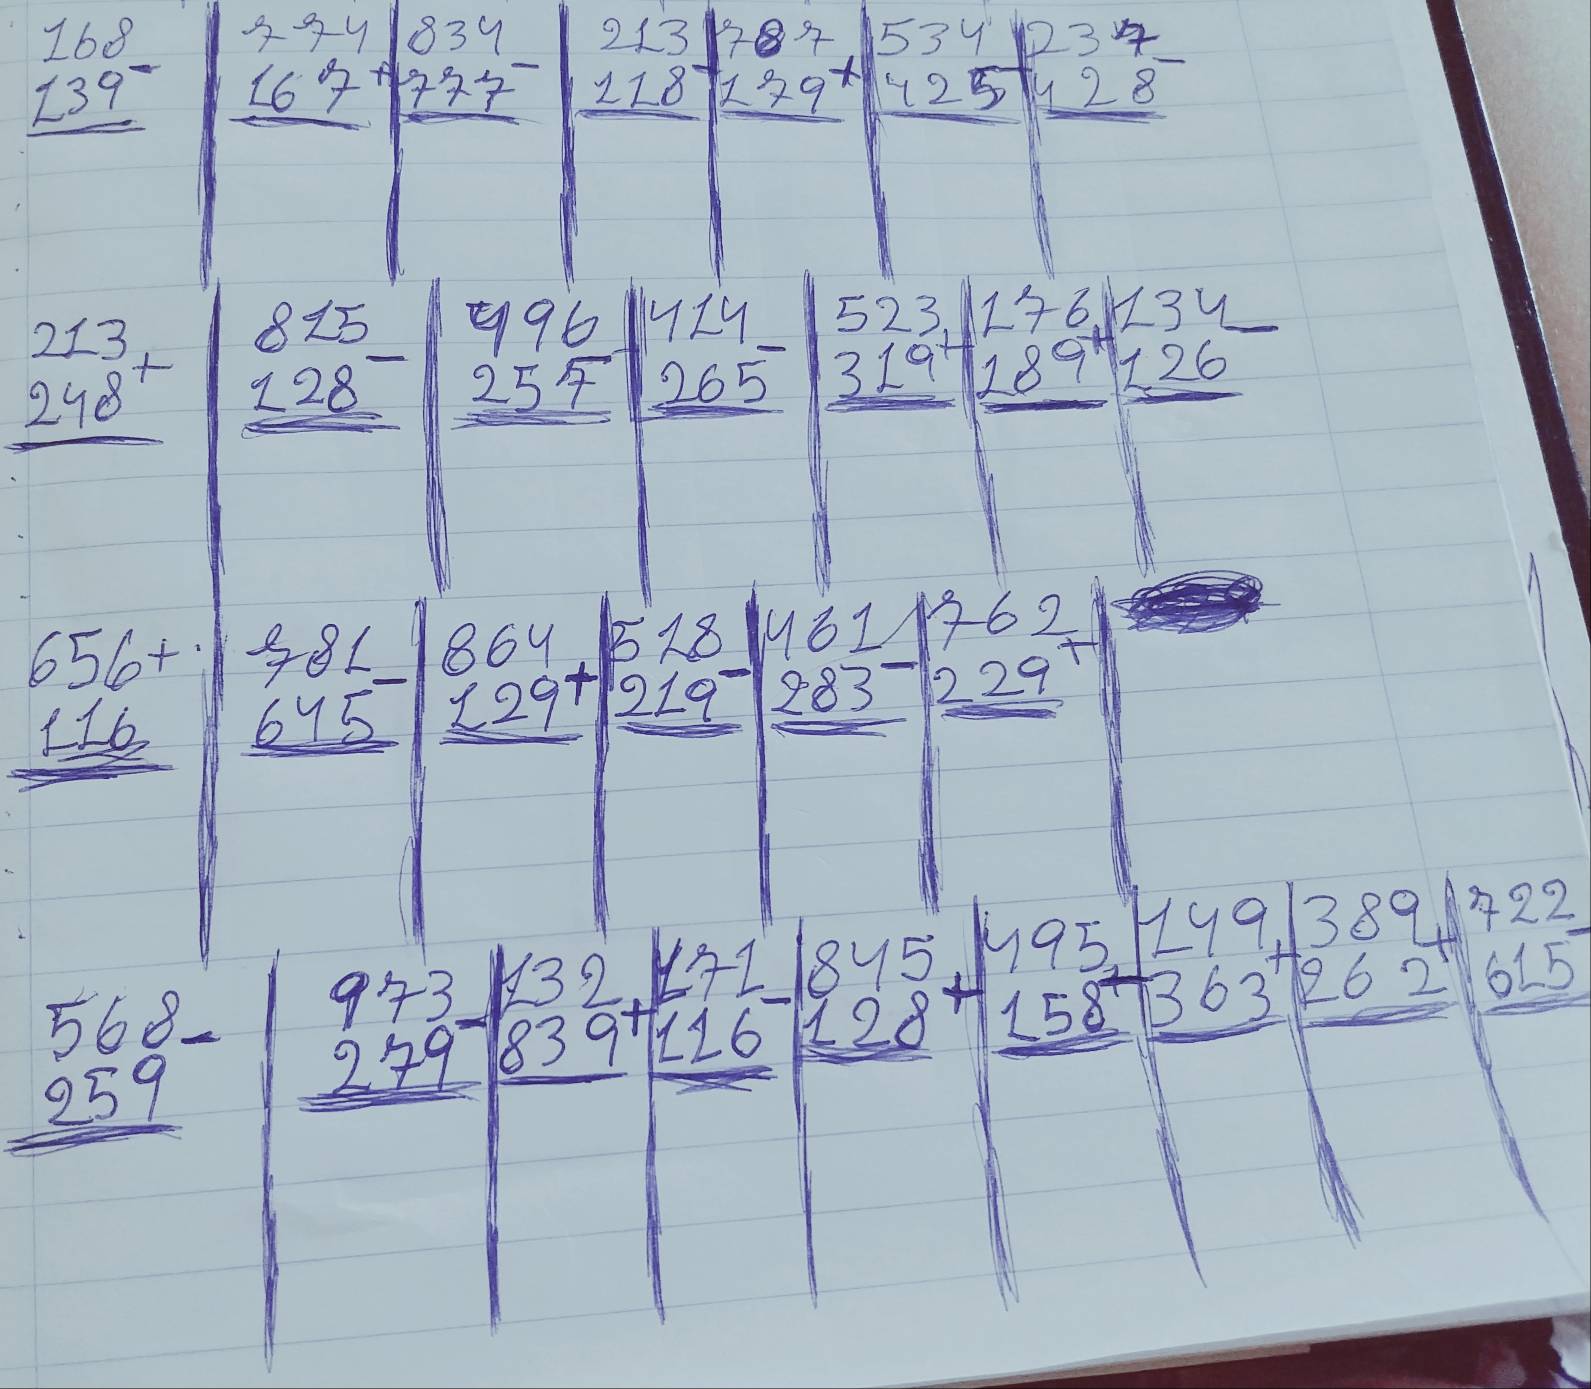 168 774 834 213 787 534 237
- + - - + - -
139 167 777 118 179 425 428
213 815 496 414 523 176 134
+ - - - + + -
248 128 257 265 319 189 126
656 + 781 864 518 461 762
- + - - +
116 645 129 219 283 229
568 - 973 132 171 845 495 149 389 722
- + - + - + + -
259 279 839 116 128 158 363 262 615